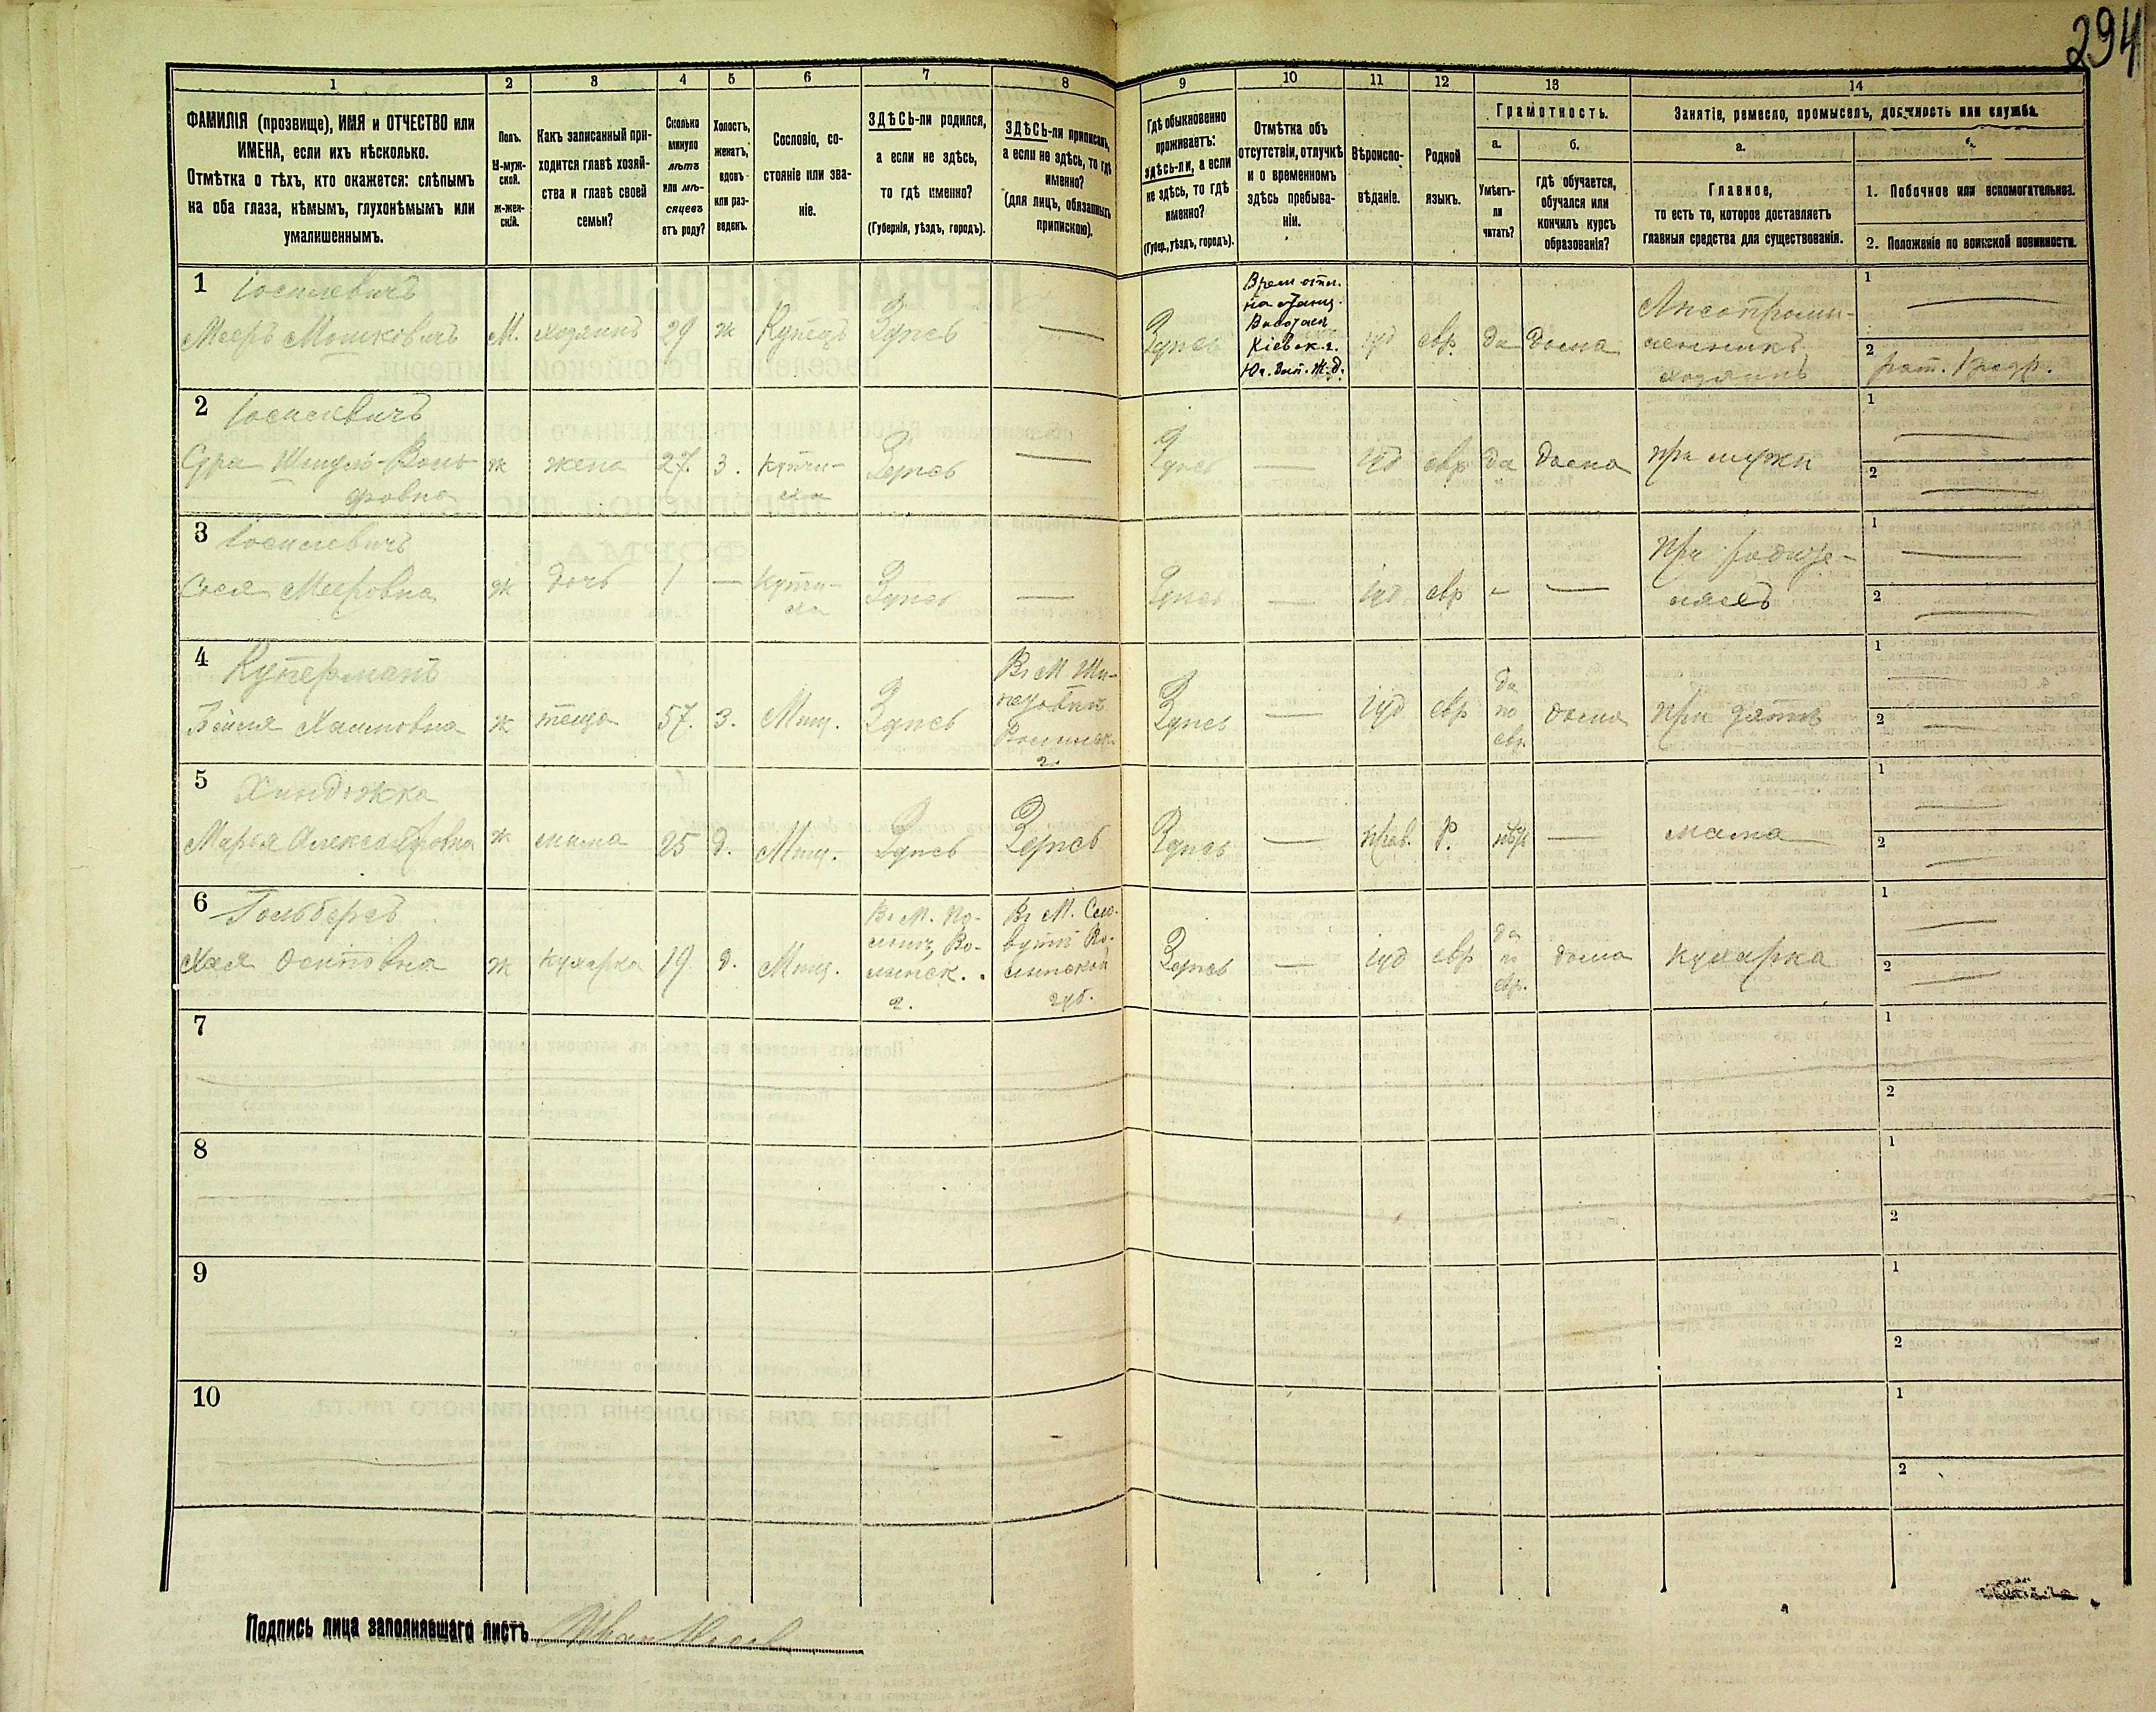 294
1
2
3
4
5
6
7
8
9
10
11
12
13
14
ФАМИЛІЯ (прозвище), ИМЯ и ОТЧЕСТВО или
ИМЕНА, если ихъ нѣсколько.
Отмѣтка о тѣхъ, кто окажется: слѣпымъ
на оба глаза, нѣмымъ, глухонѣмымъ или
умалишеннымъ.
Полъ.
М-муж-
ской.
Ж-жен-
скій.
Какъ записанный при-
ходится главѣ хозяй-
ства и главѣ своей
семьи?
Сколько
минуло
лѣтъ
или мѣ-
сяцевъ
отъ роду?
Холостъ,
женатъ,
вдовъ
или раз-
веденъ.
Сословіе, со-
стояніе или зва-
ніе.
ЗДѢСЬ-ли родился,
а если не здѣсь,
то гдѣ именно?
(Губернія, уѣздъ, городъ).
ЗДѢСЬ-ли приписанъ,
а если не здѣсь, то гдѣ
именно?
(для лицъ, обязанныхъ
припискою).
Гдѣ обыкновенно
проживаетъ:
здѣсь-ли, а если
не здѣсь, то гдѣ
именно?
(Губер., уѣздъ, городъ).
Отмѣтка объ
отсутствіи, отлучкѣ
и о временномъ
здѣсь пребыва-
ніи.
Вѣроиспо-
вѣданіе.
Родной
языкъ.
Грамотность.
а.
Умѣетъ-
ли
читать?
б.
гдѣ обучается,
обучался или
кончилъ курсъ
образованія?
Занятіе, ремесло, промыселъ, должность или служба.
а.
Главное,
то есть то, которое доставляетъ
главныя средства для существованія.
1. Побочное или вспомогательное.
2. Положеніе по воинской повинности.
1 Іосилевичъ
Мееръ Мошковичъ М. хозяинъ 29 ж Купецъ Здѣсь —
Здѣсь
Кіевск. г.
Юг. Зап. Ж. д.
іуд евр. да дома
Лѣсопромы-
шленникъ
хозяинъ
1 —
2 рат. 1 разр.
2 Іосилевичъ
Сура ж жена 27. 3. купчи-
ха Здѣсь —
Здѣсь — іуд евр да дома при мужѣ
1 —
2 —
3 Іосилевичъ
Мееровна ж дочь 1 — купчи-
ха Здѣсь —
Здѣсь — іуд евр — —
При родите-
ляхъ
1 —
2 —
4 Куперманъ
Хаимовна ж теща 57. 3. Мѣщ. Здѣсь
Въ М. Ше-
петовкѣ
Волынск.
г.
Здѣсь — іуд евр
да
по
евр.
дома при зятѣ
1 —
2 —
5
Марья Александровна ж мама 25 д. Мѣщ. Здѣсь Здѣсь
Здѣсь — прав. Р. нѣт — мама
1 —
2 —
6 Гольбергъ
Хая Осиповна ж кухарка 19 д. Мѣщ.
Въ М. По-
лонн., Во-
лынск.
г.
Въ М. Сла-
вутѣ Во-
лынской
губ.
Здѣсь — іуд евр
да
по
евр.
дома кухарка
1 —
2 —
7
1
2
8
1
2
9
1
2
10
1
2
Подпись лица заполнявшаго листъ